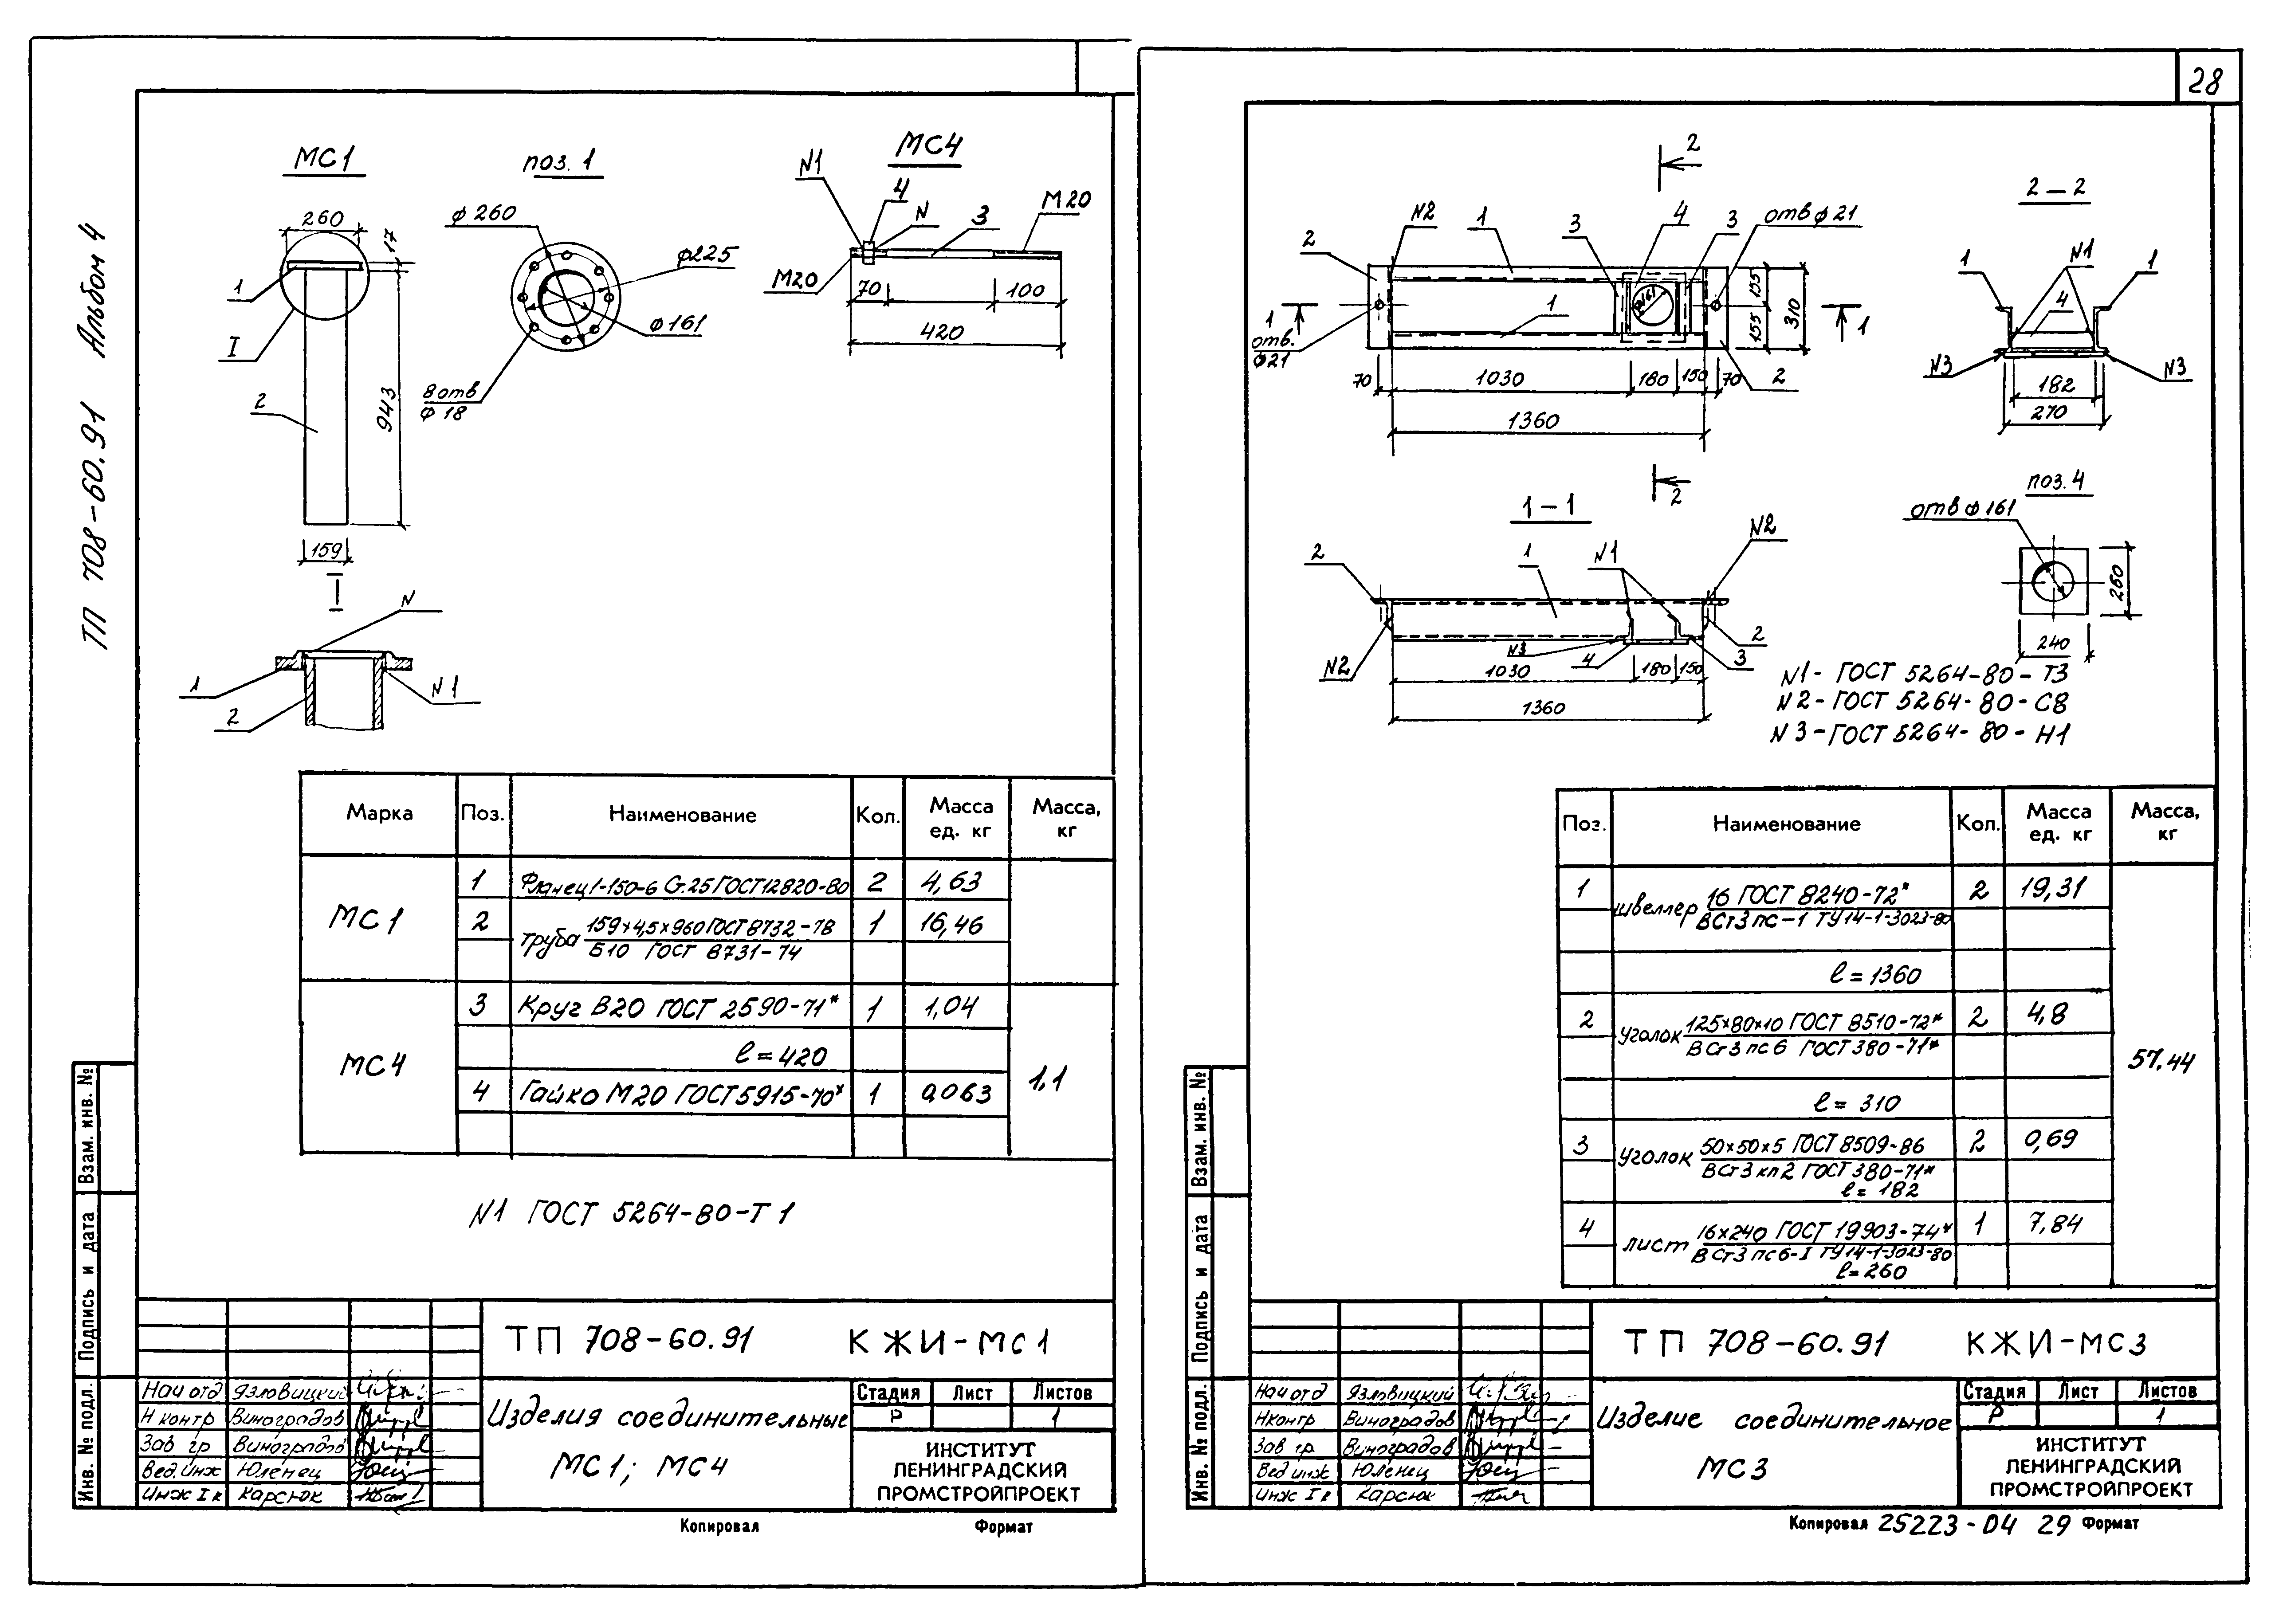 28
ТП 708-60.91 Альбом 4
МС1
поз. 1
МС4
260
17
1
I
2
943
159
ф 260
ф225
ф161
8 отв
ф 18
N1
4
N
3
М20
М20
70
100
420
I
N
1
2
N1
Марка Поз. Наименование Кол. Масса ед. кг Масса, кг
МС1
1 Фланец 1-150-6 Ст.25 ГОСТ 12820-80 2 4,63
2 труба 159×4,5×960 ГОСТ 8732-78 1 16,46
Б10 ГОСТ 8731-74
МС4
3 Круг В20 ГОСТ 2590-71* 1 1,04
ℓ=420
4 Гайка М20 ГОСТ 5915-70* 1 0,063
1,1
N1 ГОСТ 5264-80-Т1
ТП 708-60.91 КЖИ-МС1
Нач отд Язловицкий
Н контр Виноградов
Зав гр Виноградов
Вед. инж Юленец
Инж I к Карсюк
Изделия соединительные
МС1; МС4
Стадия Лист Листов
Р 1
ИНСТИТУТ
ЛЕНИНГРАДСКИЙ
ПРОМСТРОЙПРОЕКТ
Копировал Формат
Взам. инв. №
Подпись и дата
Инв. № подл.
2
2
N2
1
3
4
3
отв ф21
ф161
1
1
отв.
ф21
1
155
155
310
70
1030
180
150
70
2
1360
2
2-2
1
N1
1
4
N3
N3
182
270
1-1
2
1
N1
N2
N2
N3
4
3
2
1030
180
150
1360
поз. 4
отв ф161
260
240
N1-ГОСТ 5264-80-Т3
N2-ГОСТ 5264-80-С8
N3-ГОСТ 5264-80-Н1
Поз. Наименование Кол. Масса ед. кг Масса, кг
1 швеллер 16 ГОСТ 8240-72* 2 19,31
ВСт3пс-1 ТУ14-1-3023-80
ℓ=1360
2 уголок 125×80×10 ГОСТ 8510-72* 2 4,8
ВСт3пс6 ГОСТ 380-71*
57.44
ℓ= 310
3 уголок 50×50×5 ГОСТ 8509-86 2 0,69
ВСт3кп2 ГОСТ 380-71*
ℓ= 182
4 лист 16×240 ГОСТ 19903-74* 1 7,84
ВСт3пс6-I ТУ14-1-3023-80
ℓ=260
ТП 708-60.91 КЖИ-МС3
Нач отд Язловицкий
Нконтр Виноградов
Зав гр. Виноградов
Вед инж Юленец
Инж I к Карсюк
Изделие соединительное
МС3
Стадия Лист Листов
Р 1
ИНСТИТУТ
ЛЕНИНГРАДСКИЙ
ПРОМСТРОЙПРОЕКТ
Копировал 25223-04 29 Формат
Взам. инв. №
Подпись и дата
Инв. № подл.